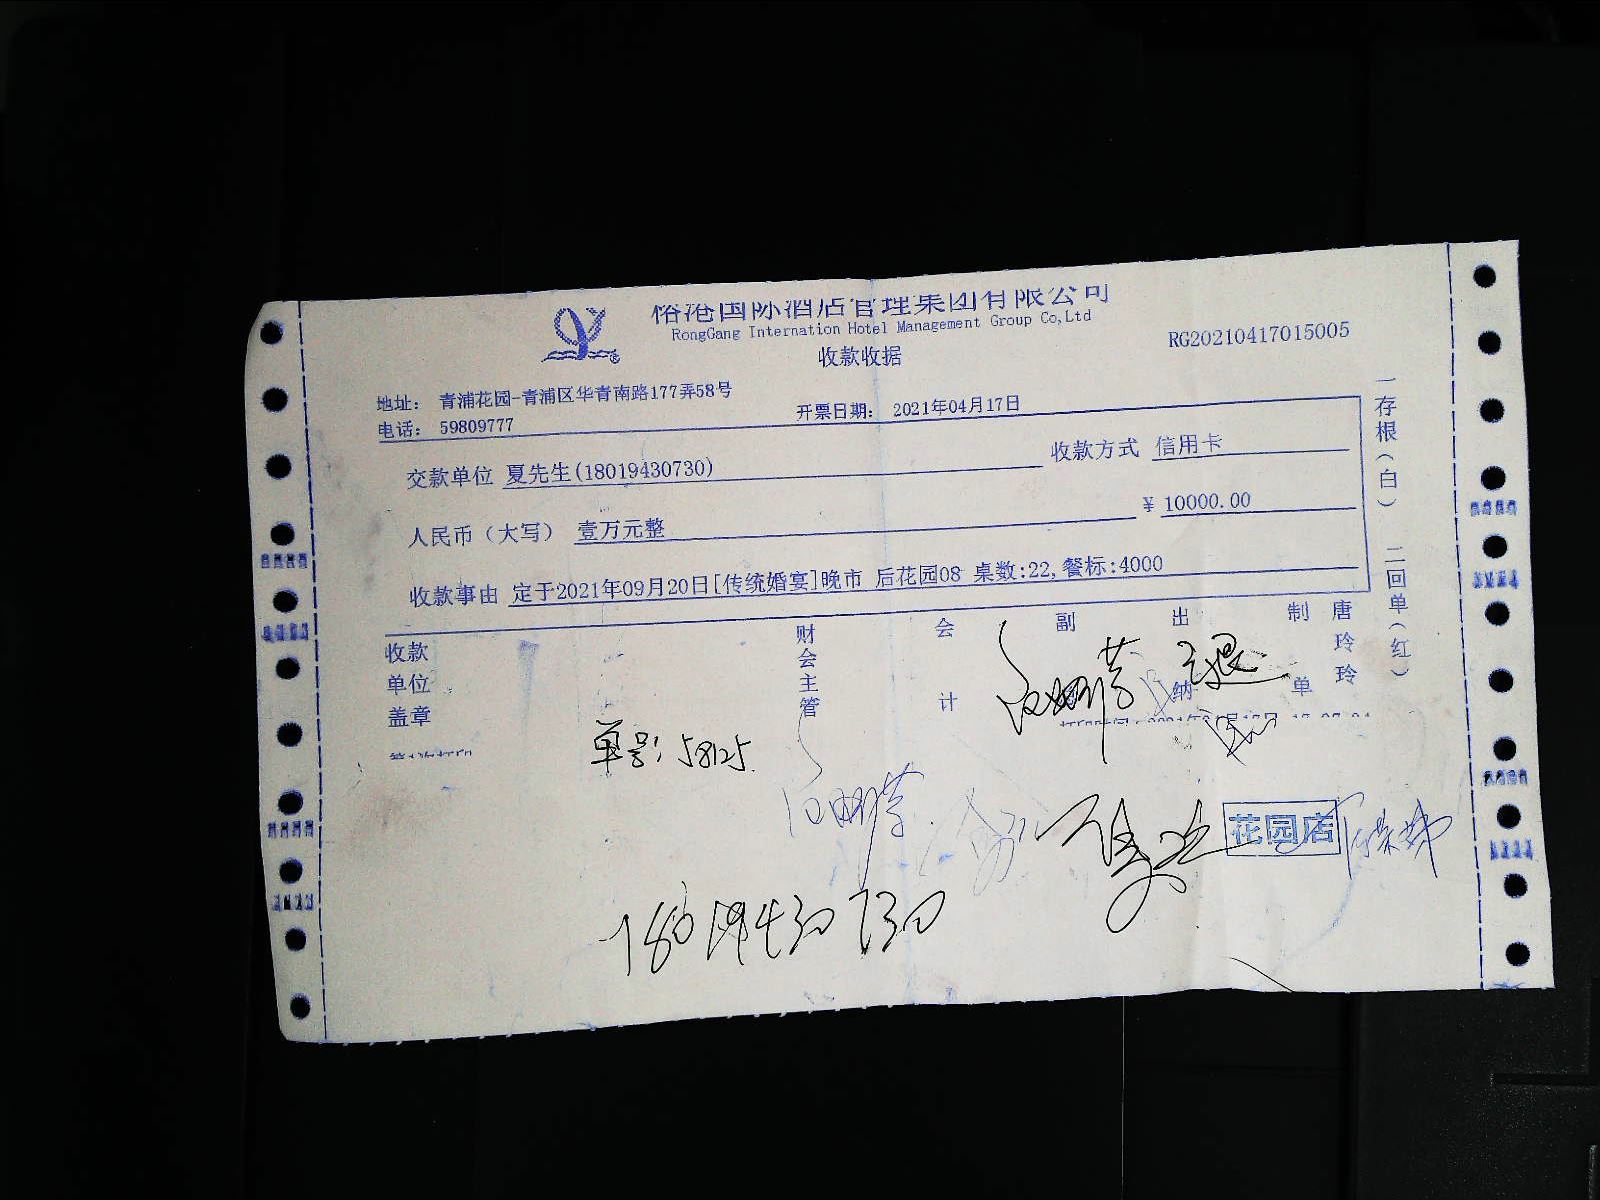 国际酒店管理集团有限公司
RongGang Internation Hotel Management Group Co,Ltd
收款收据
RG20210417015005
地址: 青浦花园-青浦区华青南路177弄58号
电话: 59809777
开票日期: 2021年04月17日
交款单位 夏先生(18019430730) 收款方式 信用卡
人民币（大写） 壹万元整 ¥ 10000.00
收款事由 定于2021年09月20日[传统婚宴]晚市 后花园08 桌数:22,餐标:4000
收款单位盖章 财会主管 会计 副 出纳 制单 唐玲玲
一存根（白） 二回单（红）
单号: 58125
花园店
18019430730